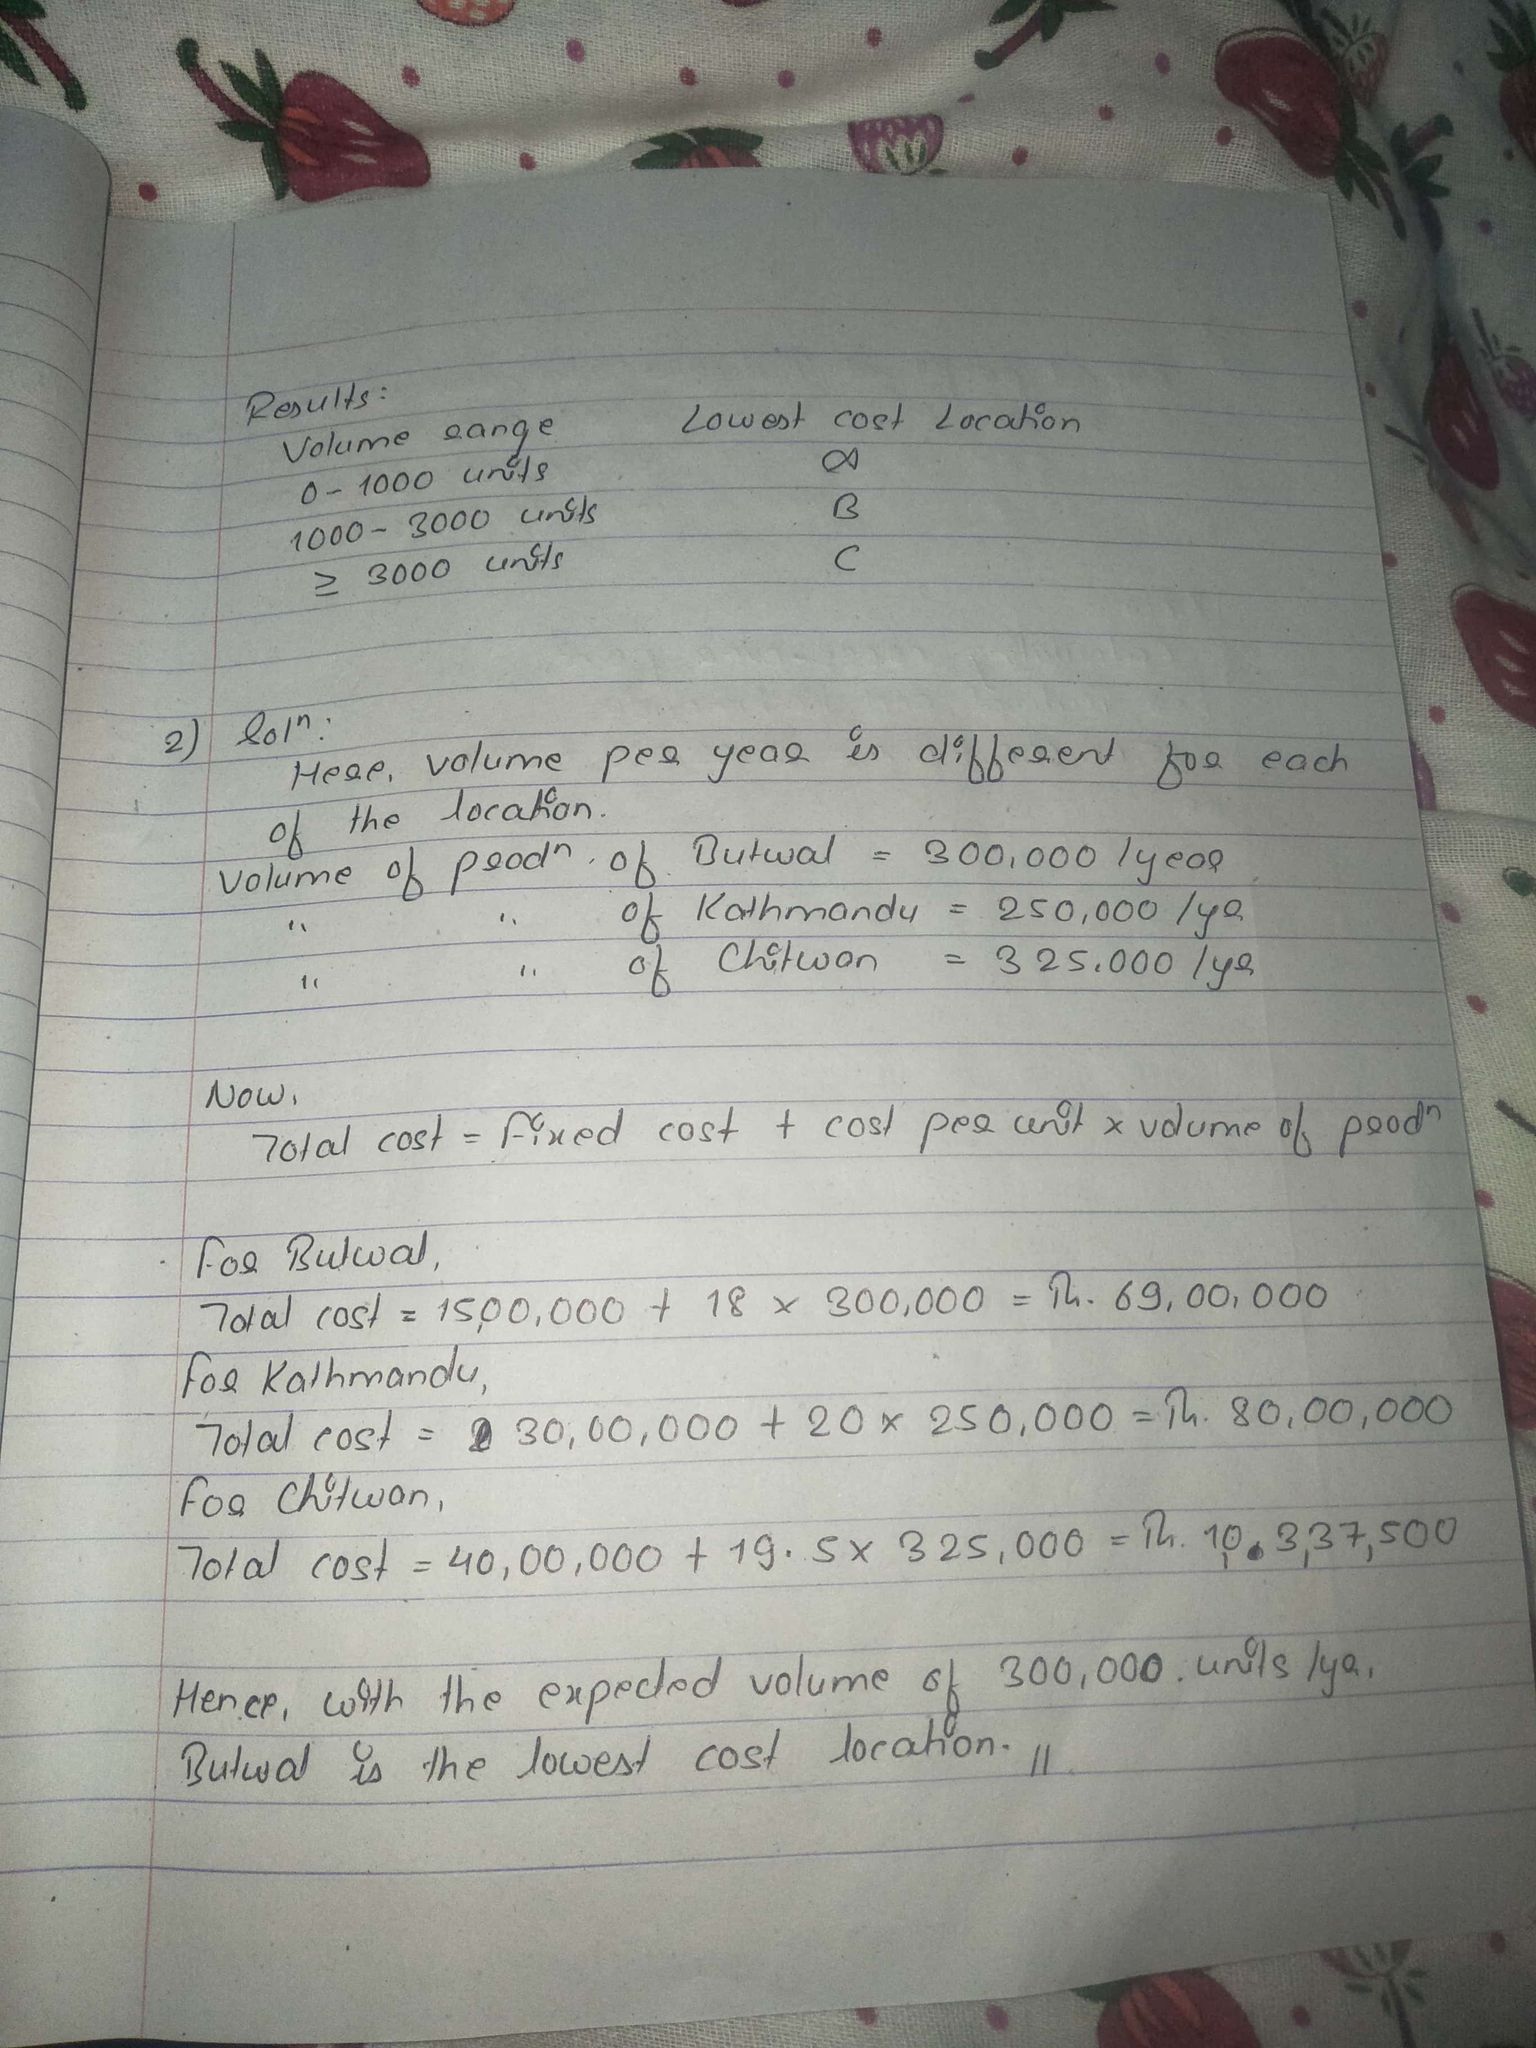 Results:
Volume range Lowest cost Location
0-1000 units A
1000-3000 units B
≥ 3000 units C
2) Solⁿ:
Here, volume per year is different for each
of the location.
Volume of prodⁿ. of Butwal = 300,000 /year
" " of Kathmandu = 250,000 /yr
" " of Chitwan = 325,000 /yr
Now,
Total cost = Fixed cost + cost per unit x volume of prodⁿ
For Butwal,
Total cost = 15,00,000 + 18 x 300,000 = Rs. 69,00,000
For Kathmandu,
Total cost = 30,00,000 + 20 x 250,000 = Rs. 80,00,000
For Chitwan,
Total cost = 40,00,000 + 19.5 x 325,000 = Rs. 10,3,37,500
Hence, with the expected volume of 300,000. units /yr,
Butwal is the lowest cost location. //